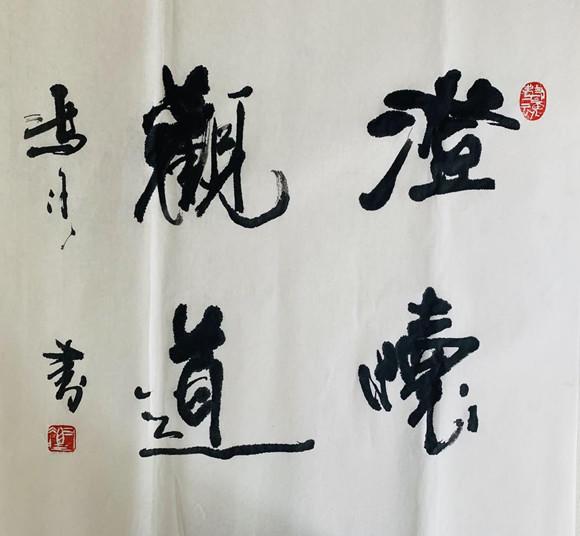 澄懷
觀道
馮
書